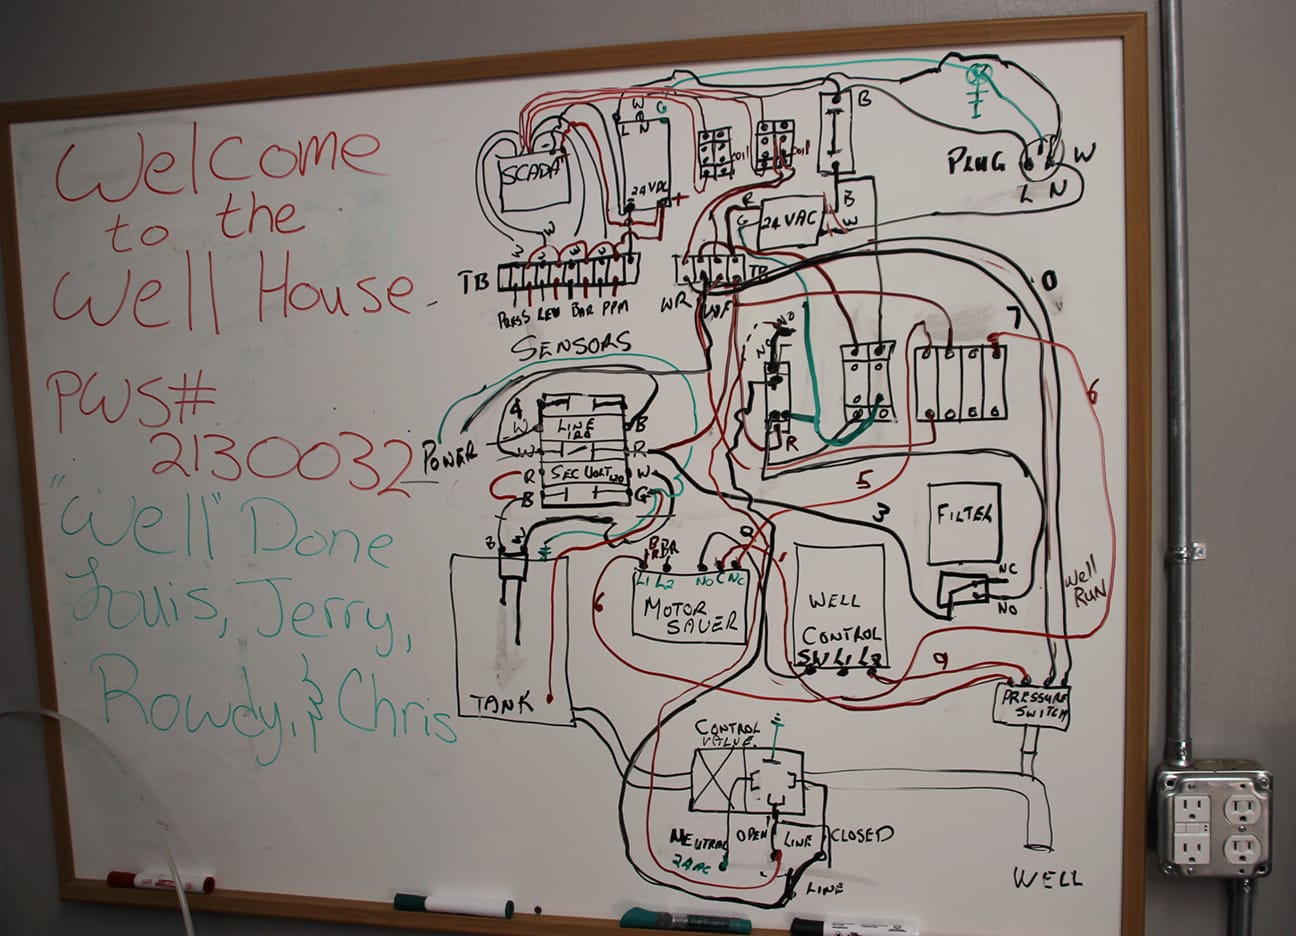 Welcome
to the
Well House
PWS#
2130032
"Well" Done
Louis, Jerry,
Rowdy, & Chris
SCADA
W G
L N
24 VDC
+
COIL
COIL
B
PLUG
W
L N
R
G
24 VAC
B
W
W W W W W
TB
PRESS LEV BAR PPM
SENSORS
TB
WR WF
NO
NC
R
0
7
6
5
3
POWER
4
W
LINE
120
B
W
R
R
SEC VOLT 120
W
B
G
B
W
TANK
8
BR BR
L1 L2 NO C NC
MOTOR
SAVER
6
WELL
CONTROL
SW L1 L2
9
FILTER
NC
NO
Well
RUN
PRESSURE
SWITCH
CONTROL
VALVE
NEUTRAL
24 AC
OPEN
LINE
CLOSED
LINE
WELL